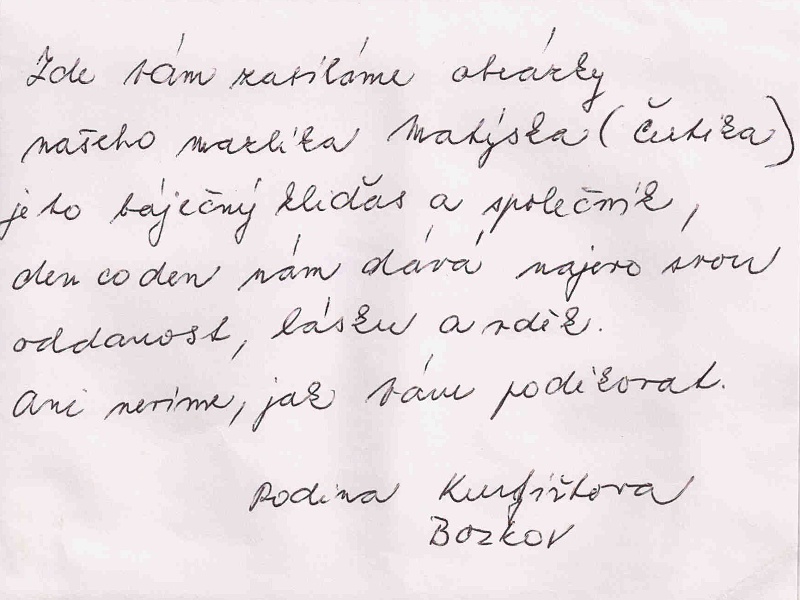 Zde vám zasíláme obrázky
našeho mazlíka Matýska (Čertíka)
je to báječný kliďas a společník,
den co den nám dává najevo svou
oddanost, lásku a vděk.
Ani nevíme, jak vám poděkovat.
Rodina Kurfiřtova
Bozkov